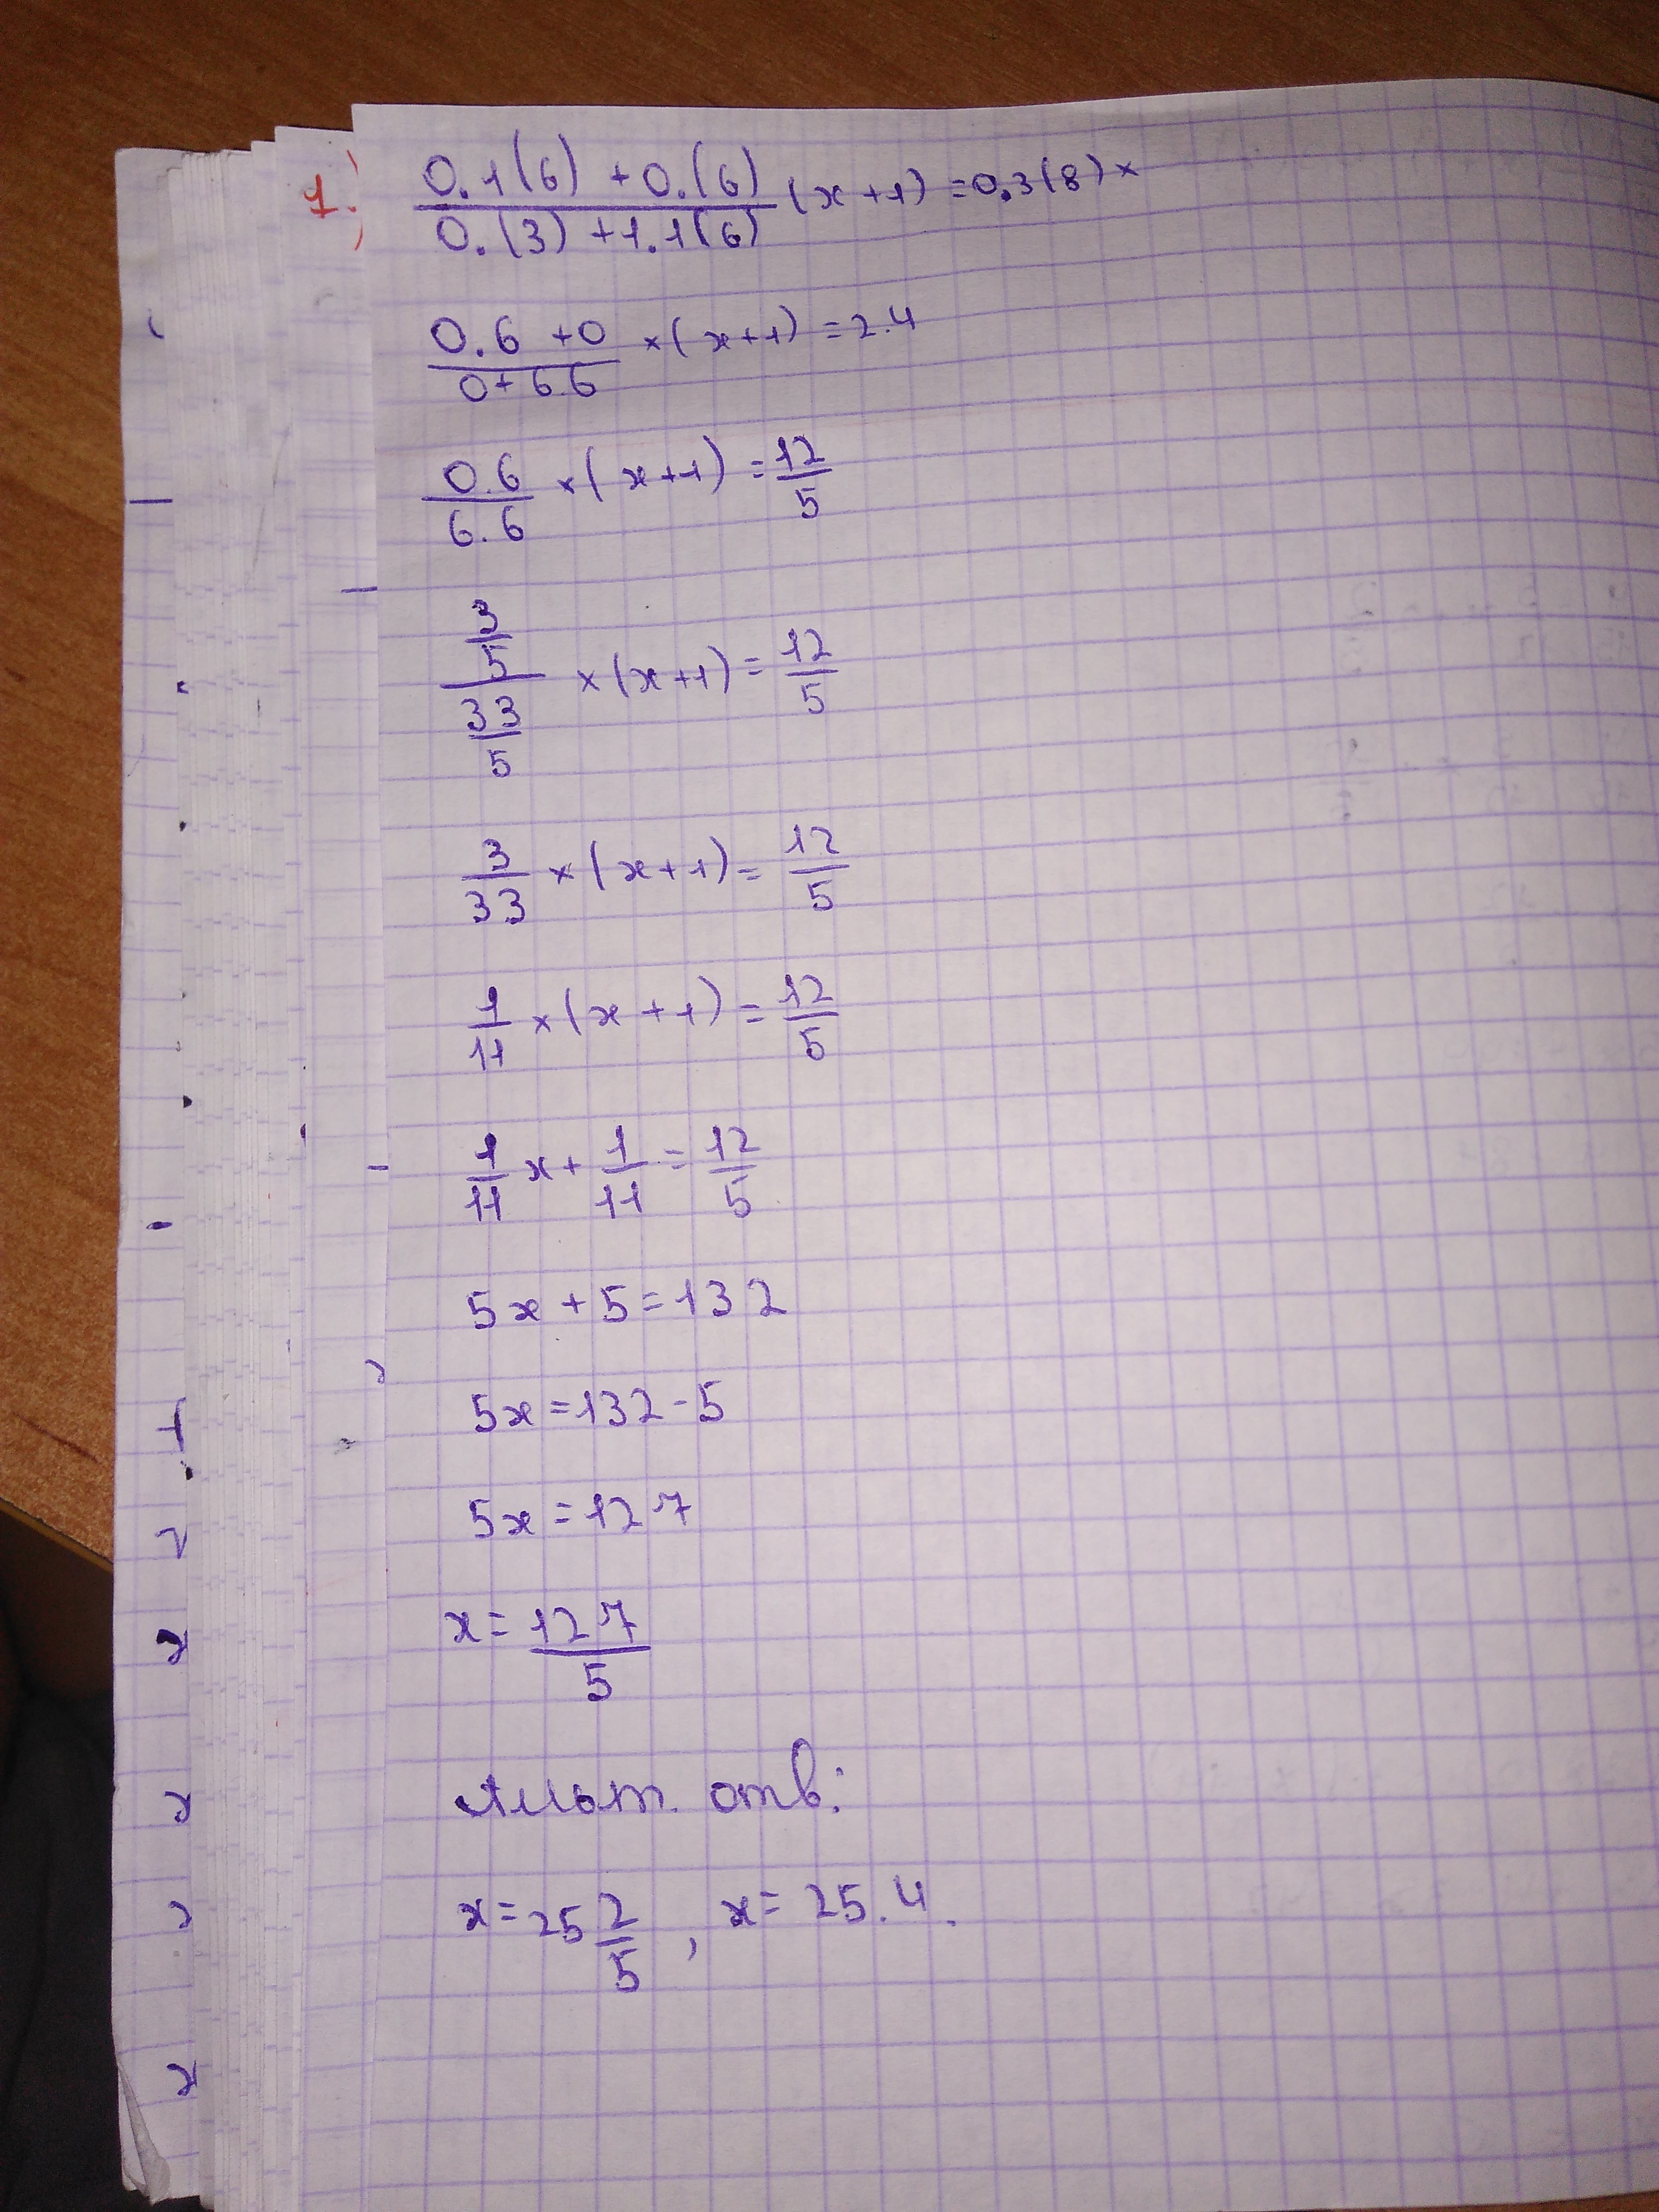 1.) (0.1(6) + 0.(6))/(0.(3) + 1.1(6)) (x + 1) = 0.3(8) x
(0.6 + 0)/(0 + 6.6) × (x + 1) = 2.4
0.6/6.6 × (x + 1) = 12/5
(3/5)/(33/5) × (x + 1) = 12/5
3/33 × (x + 1) = 12/5
1/11 × (x + 1) = 12/5
1/11 x + 1/11 = 12/5
5x + 5 = 132
5x = 132 - 5
5x = 127
x = 127/5
отв:
x = 25 2/5, x = 25.4.